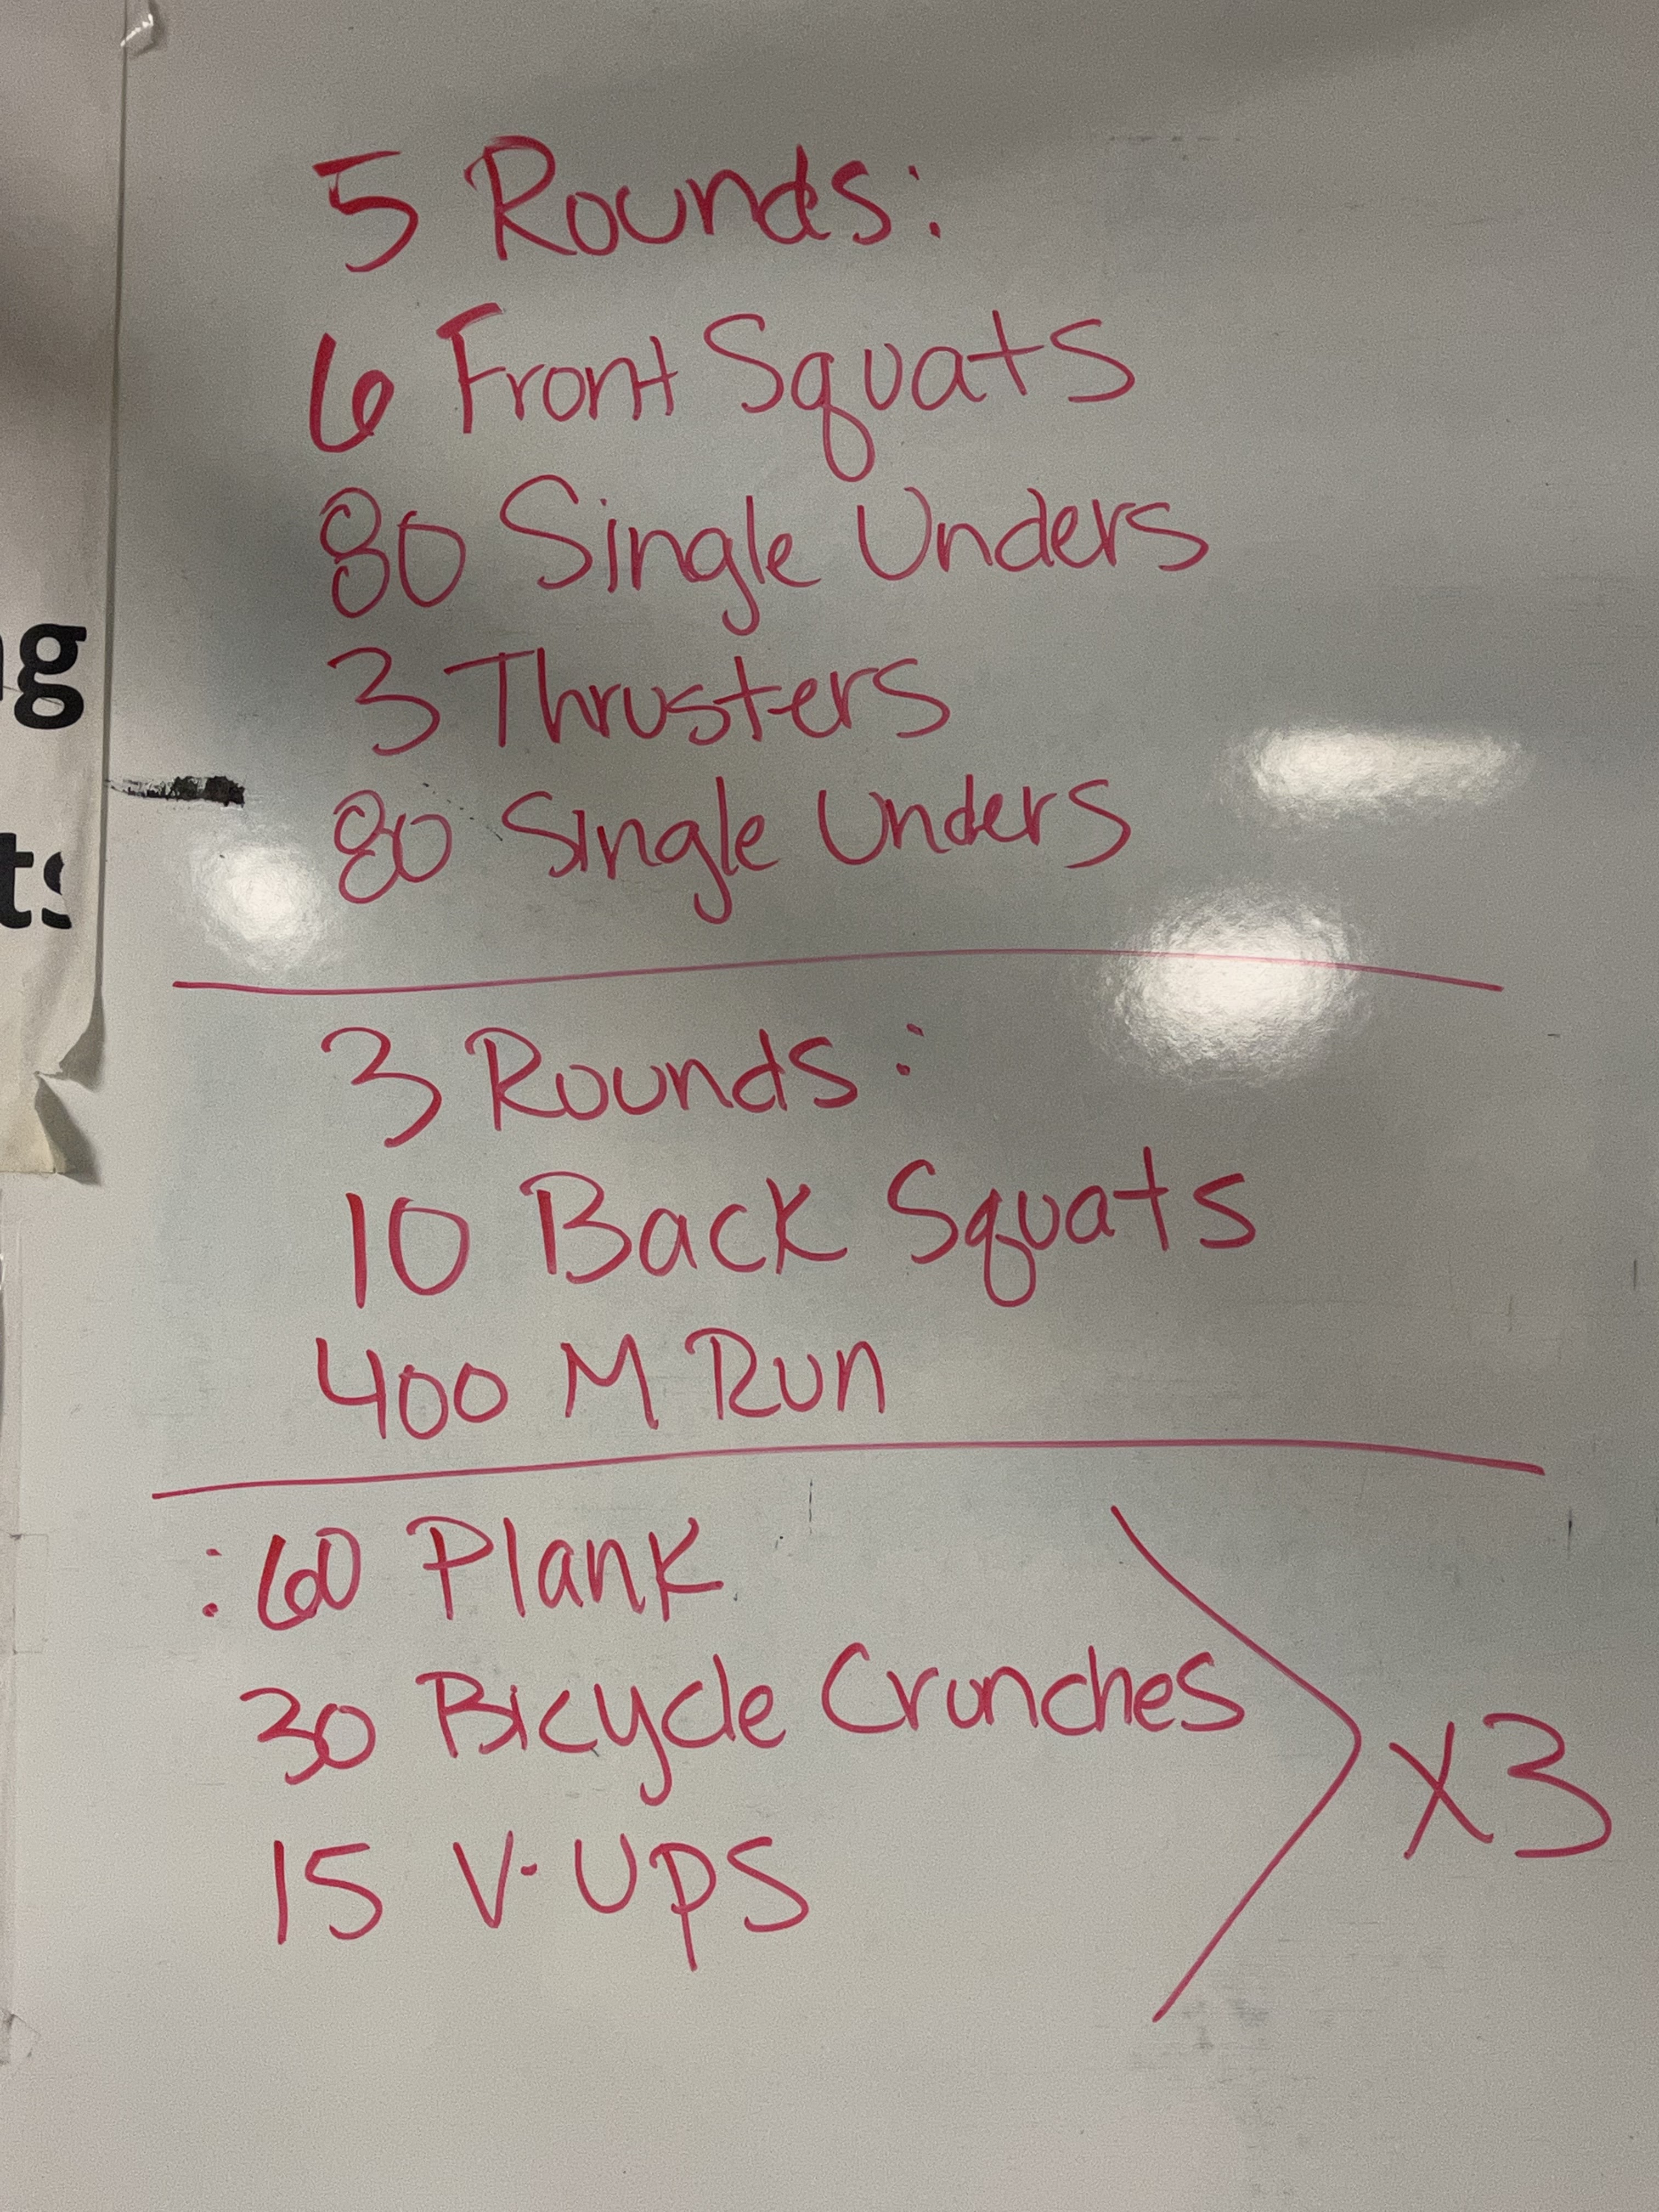 5 Rounds:
6 Front Squats
80 Single Unders
3 Thrusters
80 Single Unders
3 Rounds:
10 Back Squats
400 M Run
:60 Plank
30 Bicycle Crunches
15 V-Ups
x3